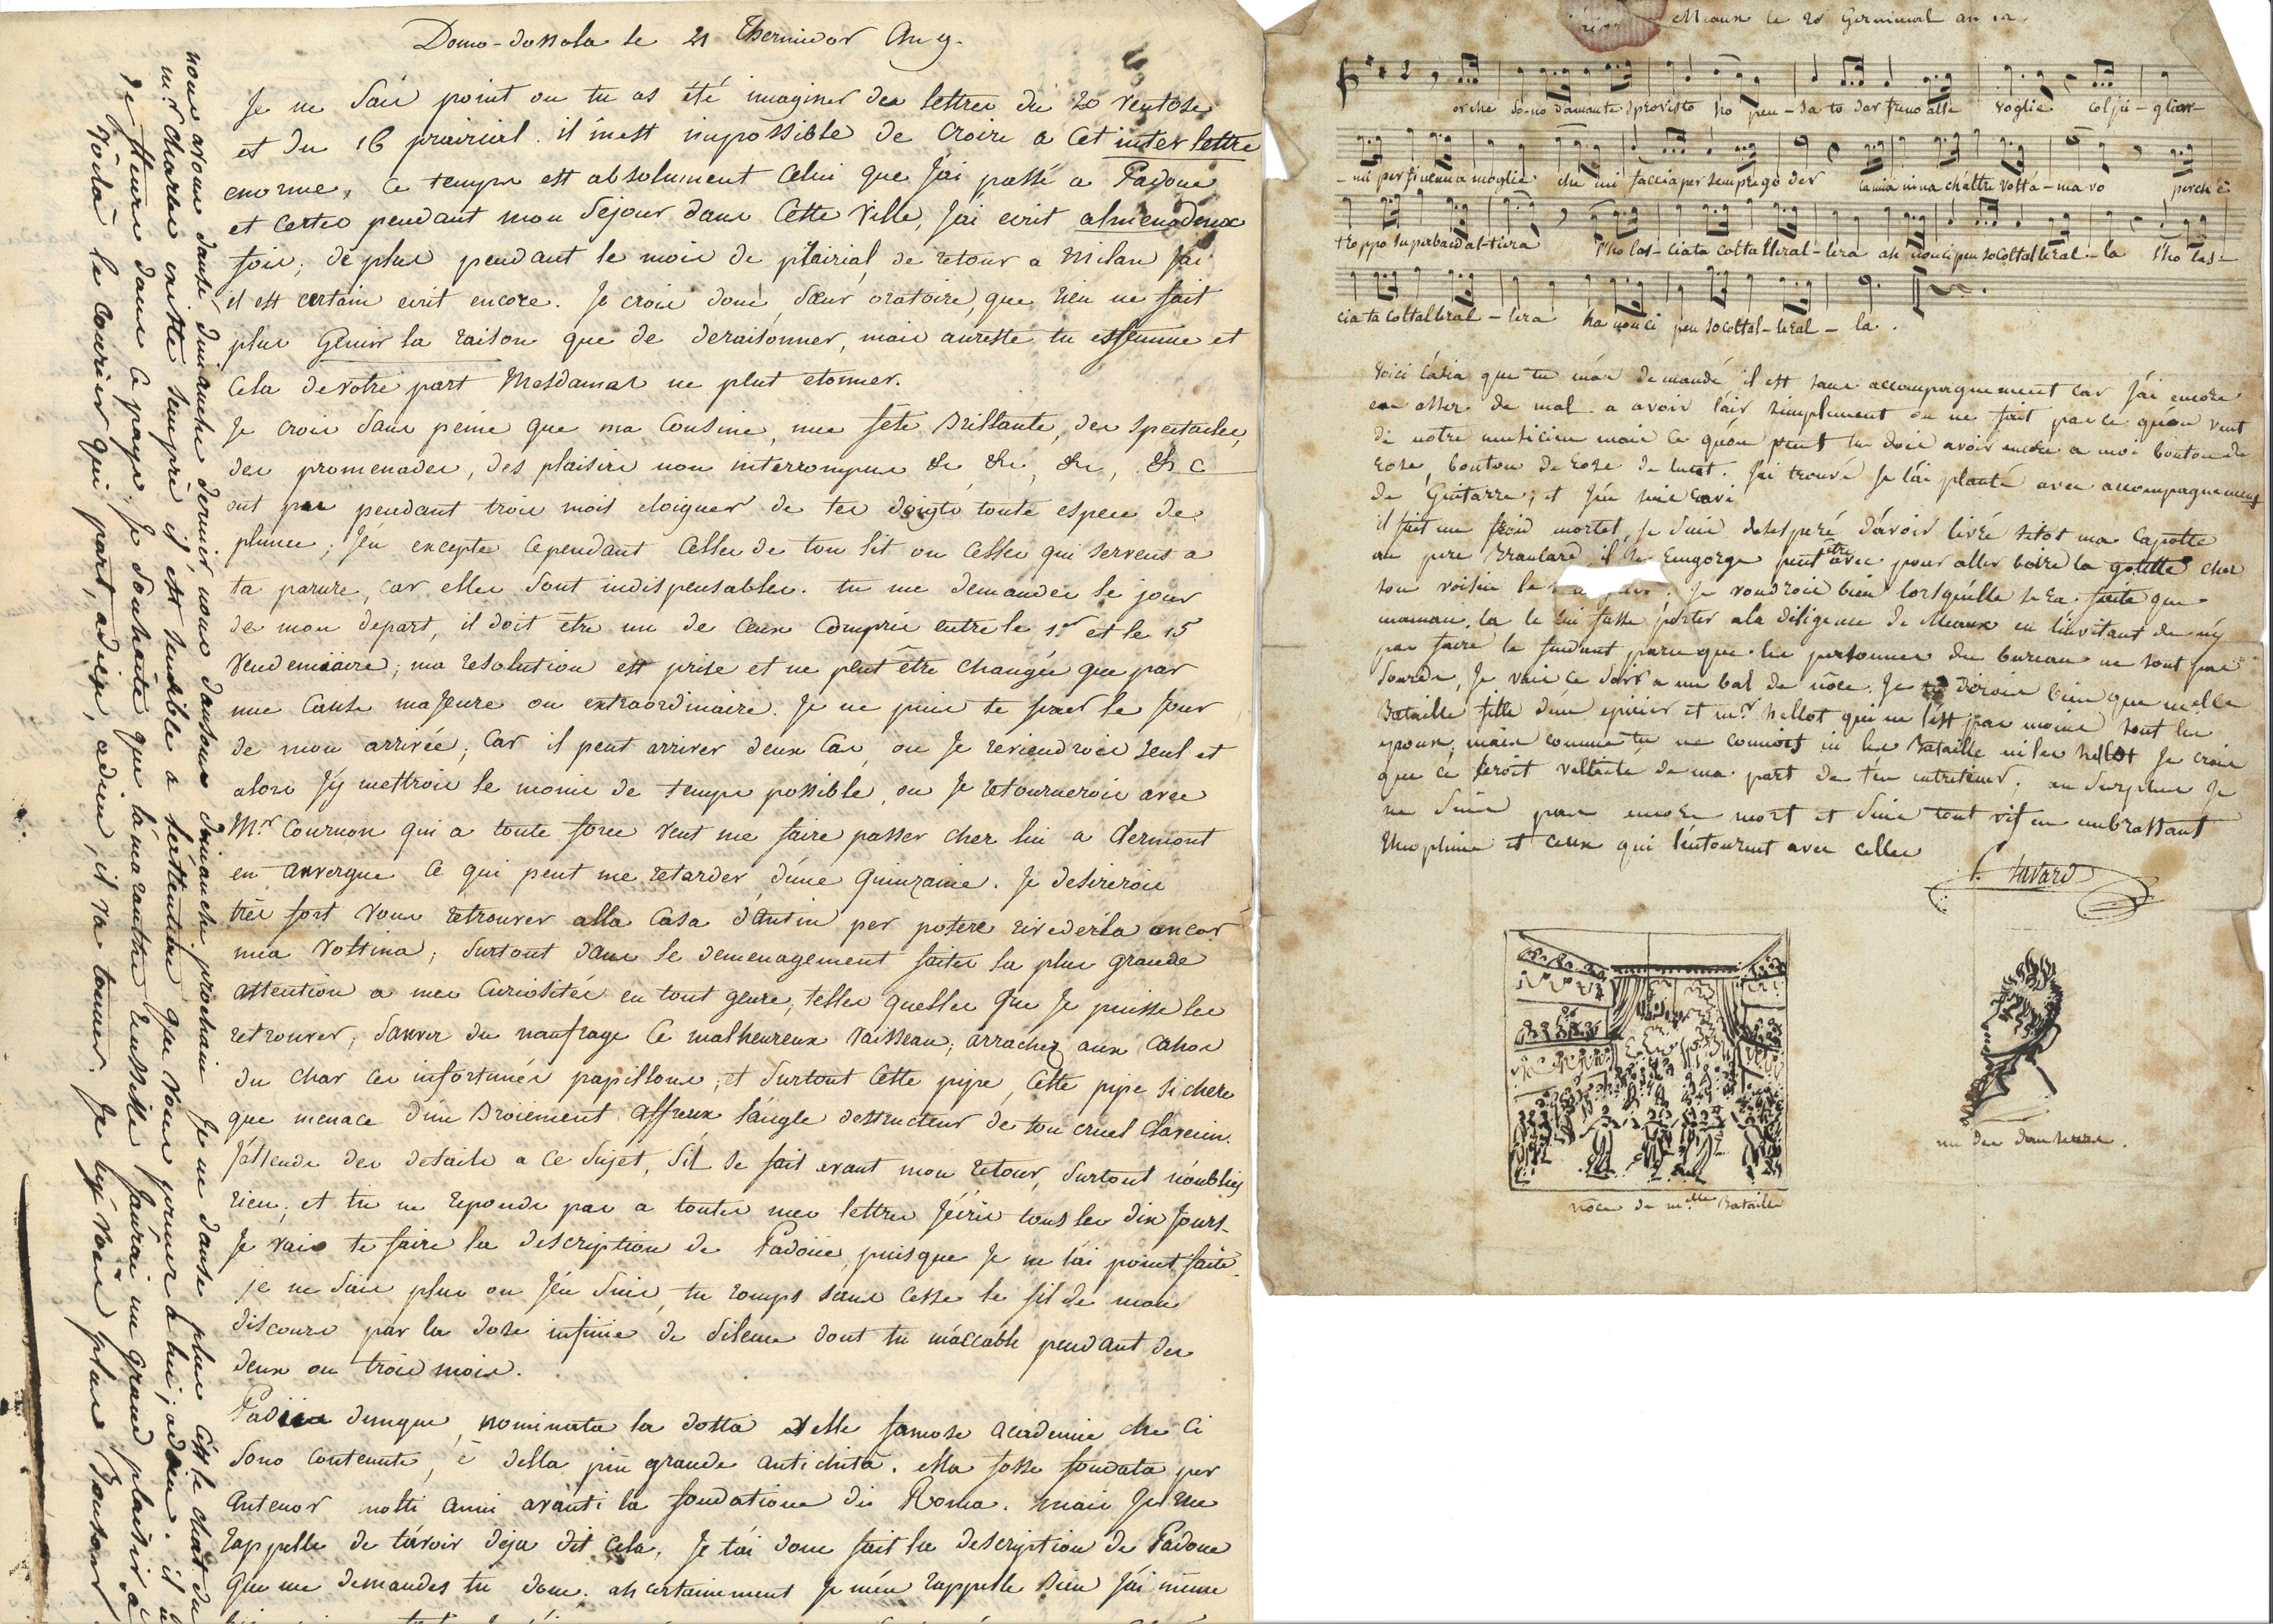 Domo-dossola le 21 Thermidor An 9.
Je ne sais point ou tu as été imaginer des lettres du 20 ventose
et du 16 prairial. il m'est impossible de croire a cet inter lettre
enorme, ce temps est absolument celui que j'ai passé a Padoue
et certes pendant mon sejour dans cette ville, j'ai ecrit almenodeux
fois; de plus pendant le mois de plairial, de retour a Milan j'ai
il est certain ecrit encore. Je crois donc, sœur oratoire, que rien ne fait
plus gemir la raison que de deraisonner, mais aureste tu es femme et
cela de votre part Mesdames ne peut etonner.
Je crois sans peine que ma Cousine, une fête brillante, des spectacles,
des promenades, des plaisirs non interrompus &c &c, &c, &c
ont pu pendant trois mois eloigner de tes doigts toute espece de
plume; j'en excepte cependant celles de ton lit ou celles qui servent a
ta parure, car elles sont indispensables. tu me demandes le jour
de mon depart, il doit être un de ceux compris entre le 1er et le 15
vendemiaire; ma resolution est prise et ne peut être changée que par
une cause majeure ou extraordinaire. Je ne puis te fixer le jour
de mon arrivée; car il peut arriver deux cas, ou Je reviendrois seul et
alors j'y mettrois le moins de temps possible, ou Je retournerois avec
Mr Cournon qui a toute force veut me faire passer chez lui a Clermont
en auvergne ce qui peut me retarder d'une quinzaine. Je desirerois
très fort vous retrouver alla casa d'antin per potere rivederla ancor
mia Voltina; surtout dans le demenagement faites la plus grande
attention a mes curiosités en tout genre, telles quelles que Je puisse les
retrouver; sauver du naufrage ce malheureux vaisseau; arrachez aux cahos
du char ces infortunés papillons, et surtout cette pipe, cette pipe si chere
que menace d'un broiement affreux l'angle destructeur de ton cruel clavecin.
J'attends des details a ce sujet, s'il se fait avant mon retour, surtout n'oublies
rien; et tu ne reponds pas a toutes mes lettres j'écris tous les dix jours.
Je vais te faire la description de Padoüe, puisque Je ne l'ai point faite.
je ne sais plus ou j'en suis, tu romps sans cesse le fil de mon
discours par la dose infinie de silence dont tu m'accable pendant des
deux ou trois mois.
Padua dunque, nominata la dotta delle famose academie che ci
sono contenute, è della piu grande antichità. ella fosse fondata per
Antenor molti anni avanti la fondatione di Roma. mais Je me
rappelle de t'avoir deja dit cela, Je t'ai donc fait la description de Padoue
que me demandes tu donc. ah certainement Je m'en rappelle bien j'ai même
nous avons dansé dimanche dernier nous dansons dimanche prochain Je ne danse plus c'est le chat du
mr charles existe tempre il est sensible a l'attention que vous prenez a lui; adieu. il a
de fleurs dans ce pays. Je souhaite que la maraudre reussisse j'aurai un grand plaisir à
Voila le courier qui part, adieu, adieu, il va tonner. Je t'ej vois plus Bonsoir
Meaux le 20 Germinal an 12.
or che sono d'amante sprovisto ho pen-sato dar freno alle voglie col pi-gliar-
-mi per fin una moglie che mi faccia per sempre goder la mia nina ch'altre volt'a-ma vo perch'è
troppo superba ed al-tiera l'ho las-ciata col tallera-lera ah non ci penso col tallera-la l'ho las-
ciata col tallera-lera ha non ci penso col tal-leral-la.
Voici l'asia que tu m'as demandé, il est sans accompagnement car j'ai encore
eu assez de mal a avoir l'air simplement on ne fait pas ce qu'on veut
de notre musicien mais ce qu'on peut tu dois avoir encore a moi bouton de
rose, bouton de rose de lutet. j'ai trouvé Je l'ai planté avec accompagnement
de Guitarre; et j'en suis ravi
il fait un froid mortel, Je suis desesperé d'avoir livré sitot ma capotte
au pere Braulard, il se Engorge peut être avec pour aller boire la goutte chez
son voisin le. Je voudrois bien lorsqu'elle sera faite que
maman la le lui fasse porter a la diligence de Meaux en l'invitant de n'y
pas faire le fendant parceque les personnes du bureau ne sont pas
sourdes, Je vais ce soir a un bal de nôce. Je te dirois bien que melle
Bataille fille d'un epicier et mr hellot qui ne l'est pas moins sont les
epoux; mais comme tu ne connois ni les Bataille ni les hellot Je crois
que ce seroit de ma part de t'en entretenir. au surplus Je
ne suis pas encore mort et suis tout vif en embrassant
Mes plume et ceux qui l'entourent avec celles
Favard
nôce de melle Bataille
un des danseurs.